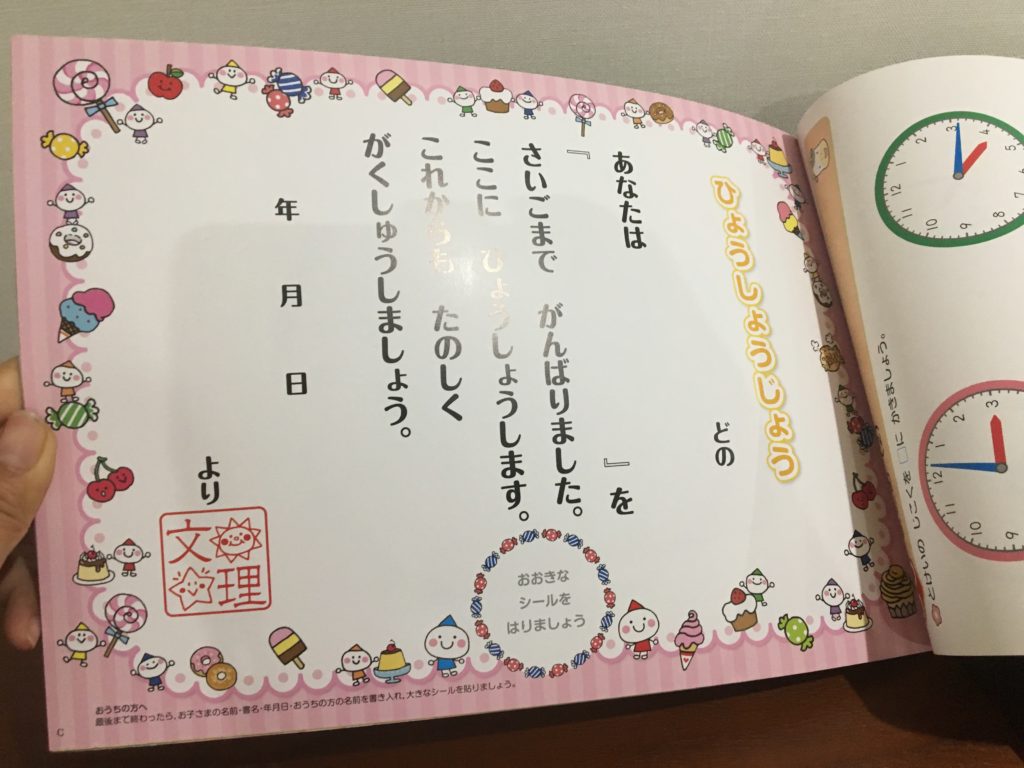 ひょうしょうじょう
どの
あなたは
『　』を
さいごまで がんばりました。
ここに ひょうしょうします。
これからも たのしく
がくしゅうしましょう。
年 月 日
より
文理
おおきな
シールを
はりましょう
おうちの方へ
最後まで終わったら、お子さまの名前・書名・年月日・おうちの方の名前を書き入れ、大きなシールを貼りましょう。
C
とけいの じこくを □に かきましょう。
12 1 2 3 4 5 7 8 9 10
12 1 2 3 10